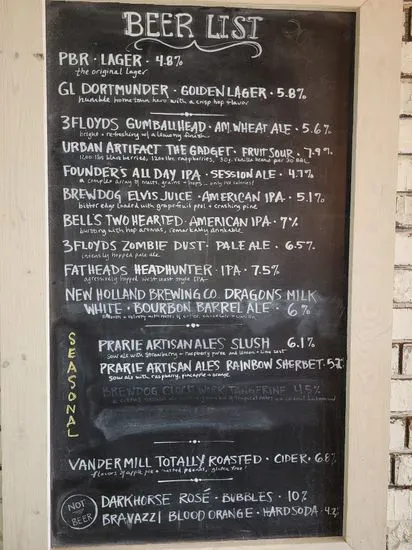 BEER LIST
PBR · LAGER · 4.8%
the original lager
GL DORTMUNDER · GOLDEN LAGER · 5.8%
humble hometown hero with a crisp hop flavor
3FLOYDS GUMBALLHEAD · AM. WHEAT ALE · 5.6%
bright + refreshing w/ a lemony finish
URBAN ARTIFACT THE GADGET · FRUIT SOUR · 7.9%
1200 lbs blackberries, 1200 lbs raspberries, 30 vanilla beans per 30 BBL
FOUNDER'S ALL DAY IPA · SESSION ALE · 4.7%
a complex array of malts, grains + hops... only 140 calories!
BREWDOG ELVIS JUICE · AMERICAN IPA · 5.1%
bitter edge loaded with grapefruit peel + crashing pine
BELL'S TWO HEARTED · AMERICAN IPA · 7%
bursting with hop aromas, remarkably drinkable
3FLOYDS ZOMBIE DUST · PALE ALE · 6.5%
intensely hopped pale ale
FATHEADS HEADHUNTER · IPA · 7.5%
aggressively hopped west coast style IPA
NEW HOLLAND BREWING CO. DRAGONS MILK
WHITE · BOURBON BARREL ALE · 6%
SEASONAL
PRARIE ARTISAN ALES SLUSH 6.1%
sour ale with strawberry + raspberry puree and lemon + lime zest
PRARIE ARTISAN ALES RAINBOW SHERBET · 5.2%
sour ale with raspberry, pineapple + orange
BREWDOG CLOCKWORK TANGERINE 4.5%
VANDERMILL TOTALLY ROASTED · CIDER · 6.8%
flavors of apple pie + roasted pecans, gluten free!
NOT BEER
DARKHORSE ROSÉ · BUBBLES · 10%
BRAVAZZI BLOOD ORANGE · HARD SODA · 4.2%